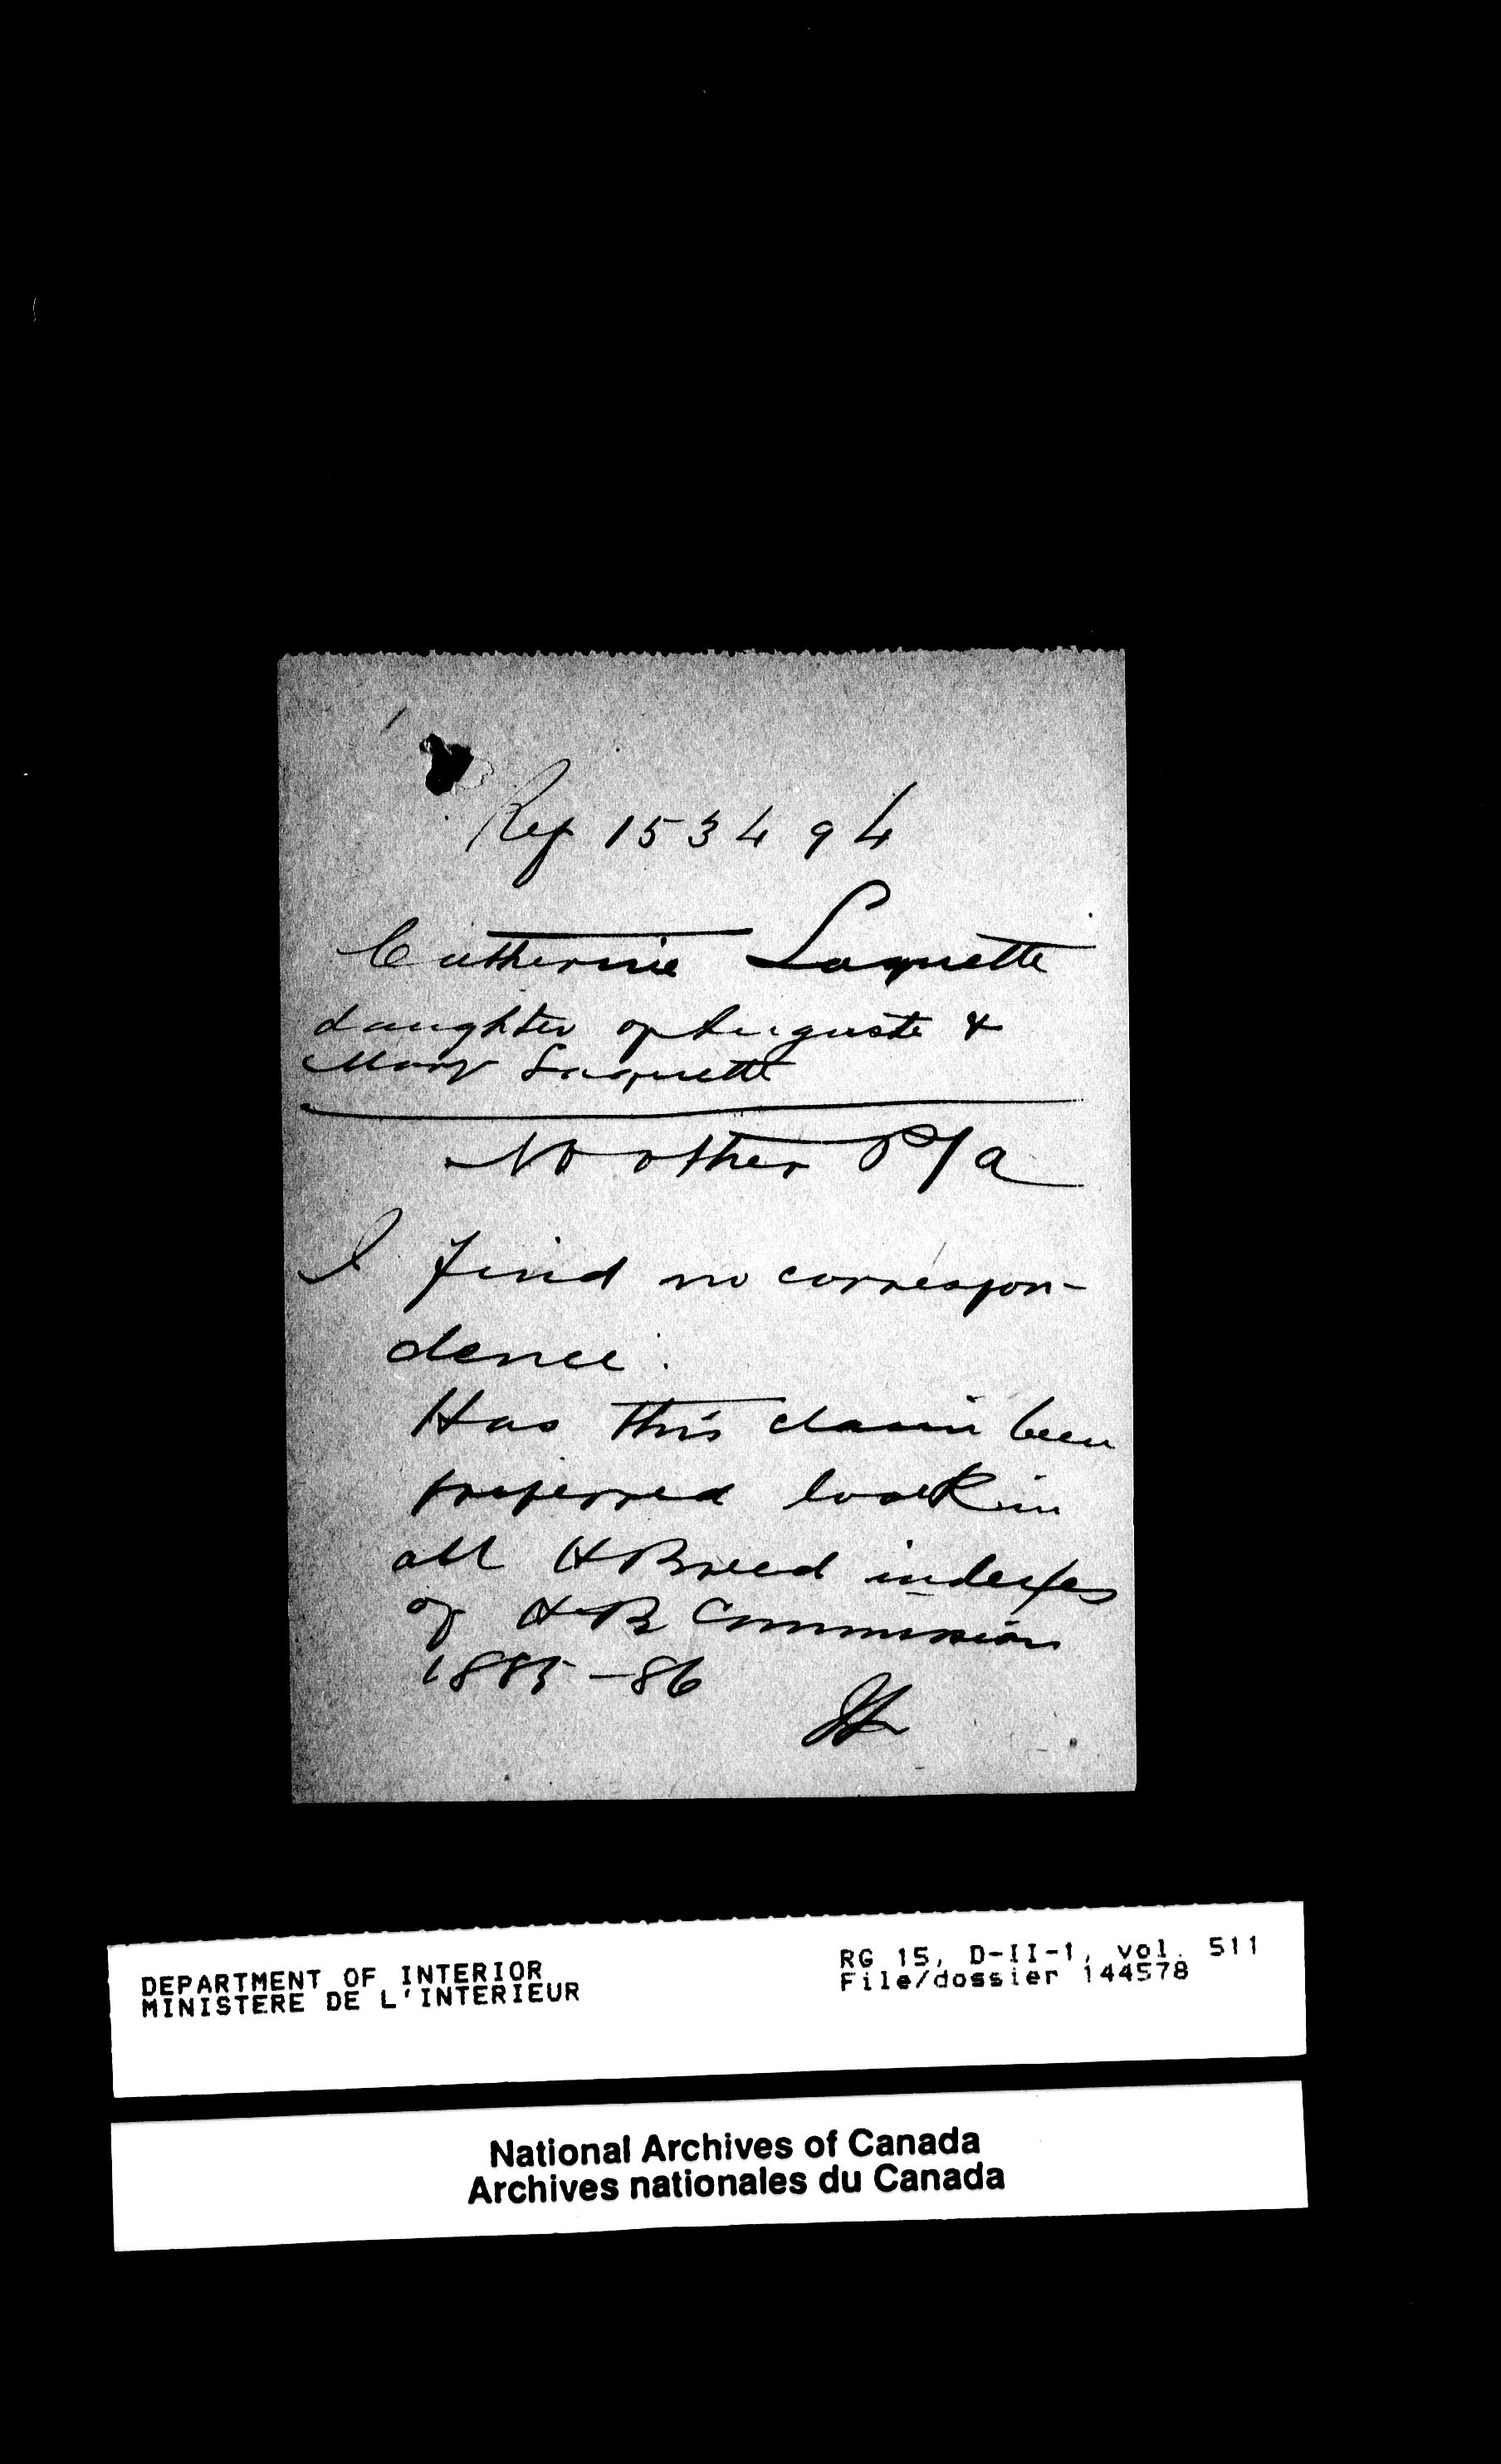 Ref 153494
Catherine Laquette
daughter of Auguste &
Mary Laquette
No other P/a
I find no correspon-
dence.
Has this claim been
preferred look in
all HBreed indexes
of HB Commission
1885-86
DEPARTMENT OF INTERIOR
MINISTERE DE L'INTERIEUR
RG 15, D-II-1, vol. 511
File/dossier 144578
National Archives of Canada
Archives nationales du Canada